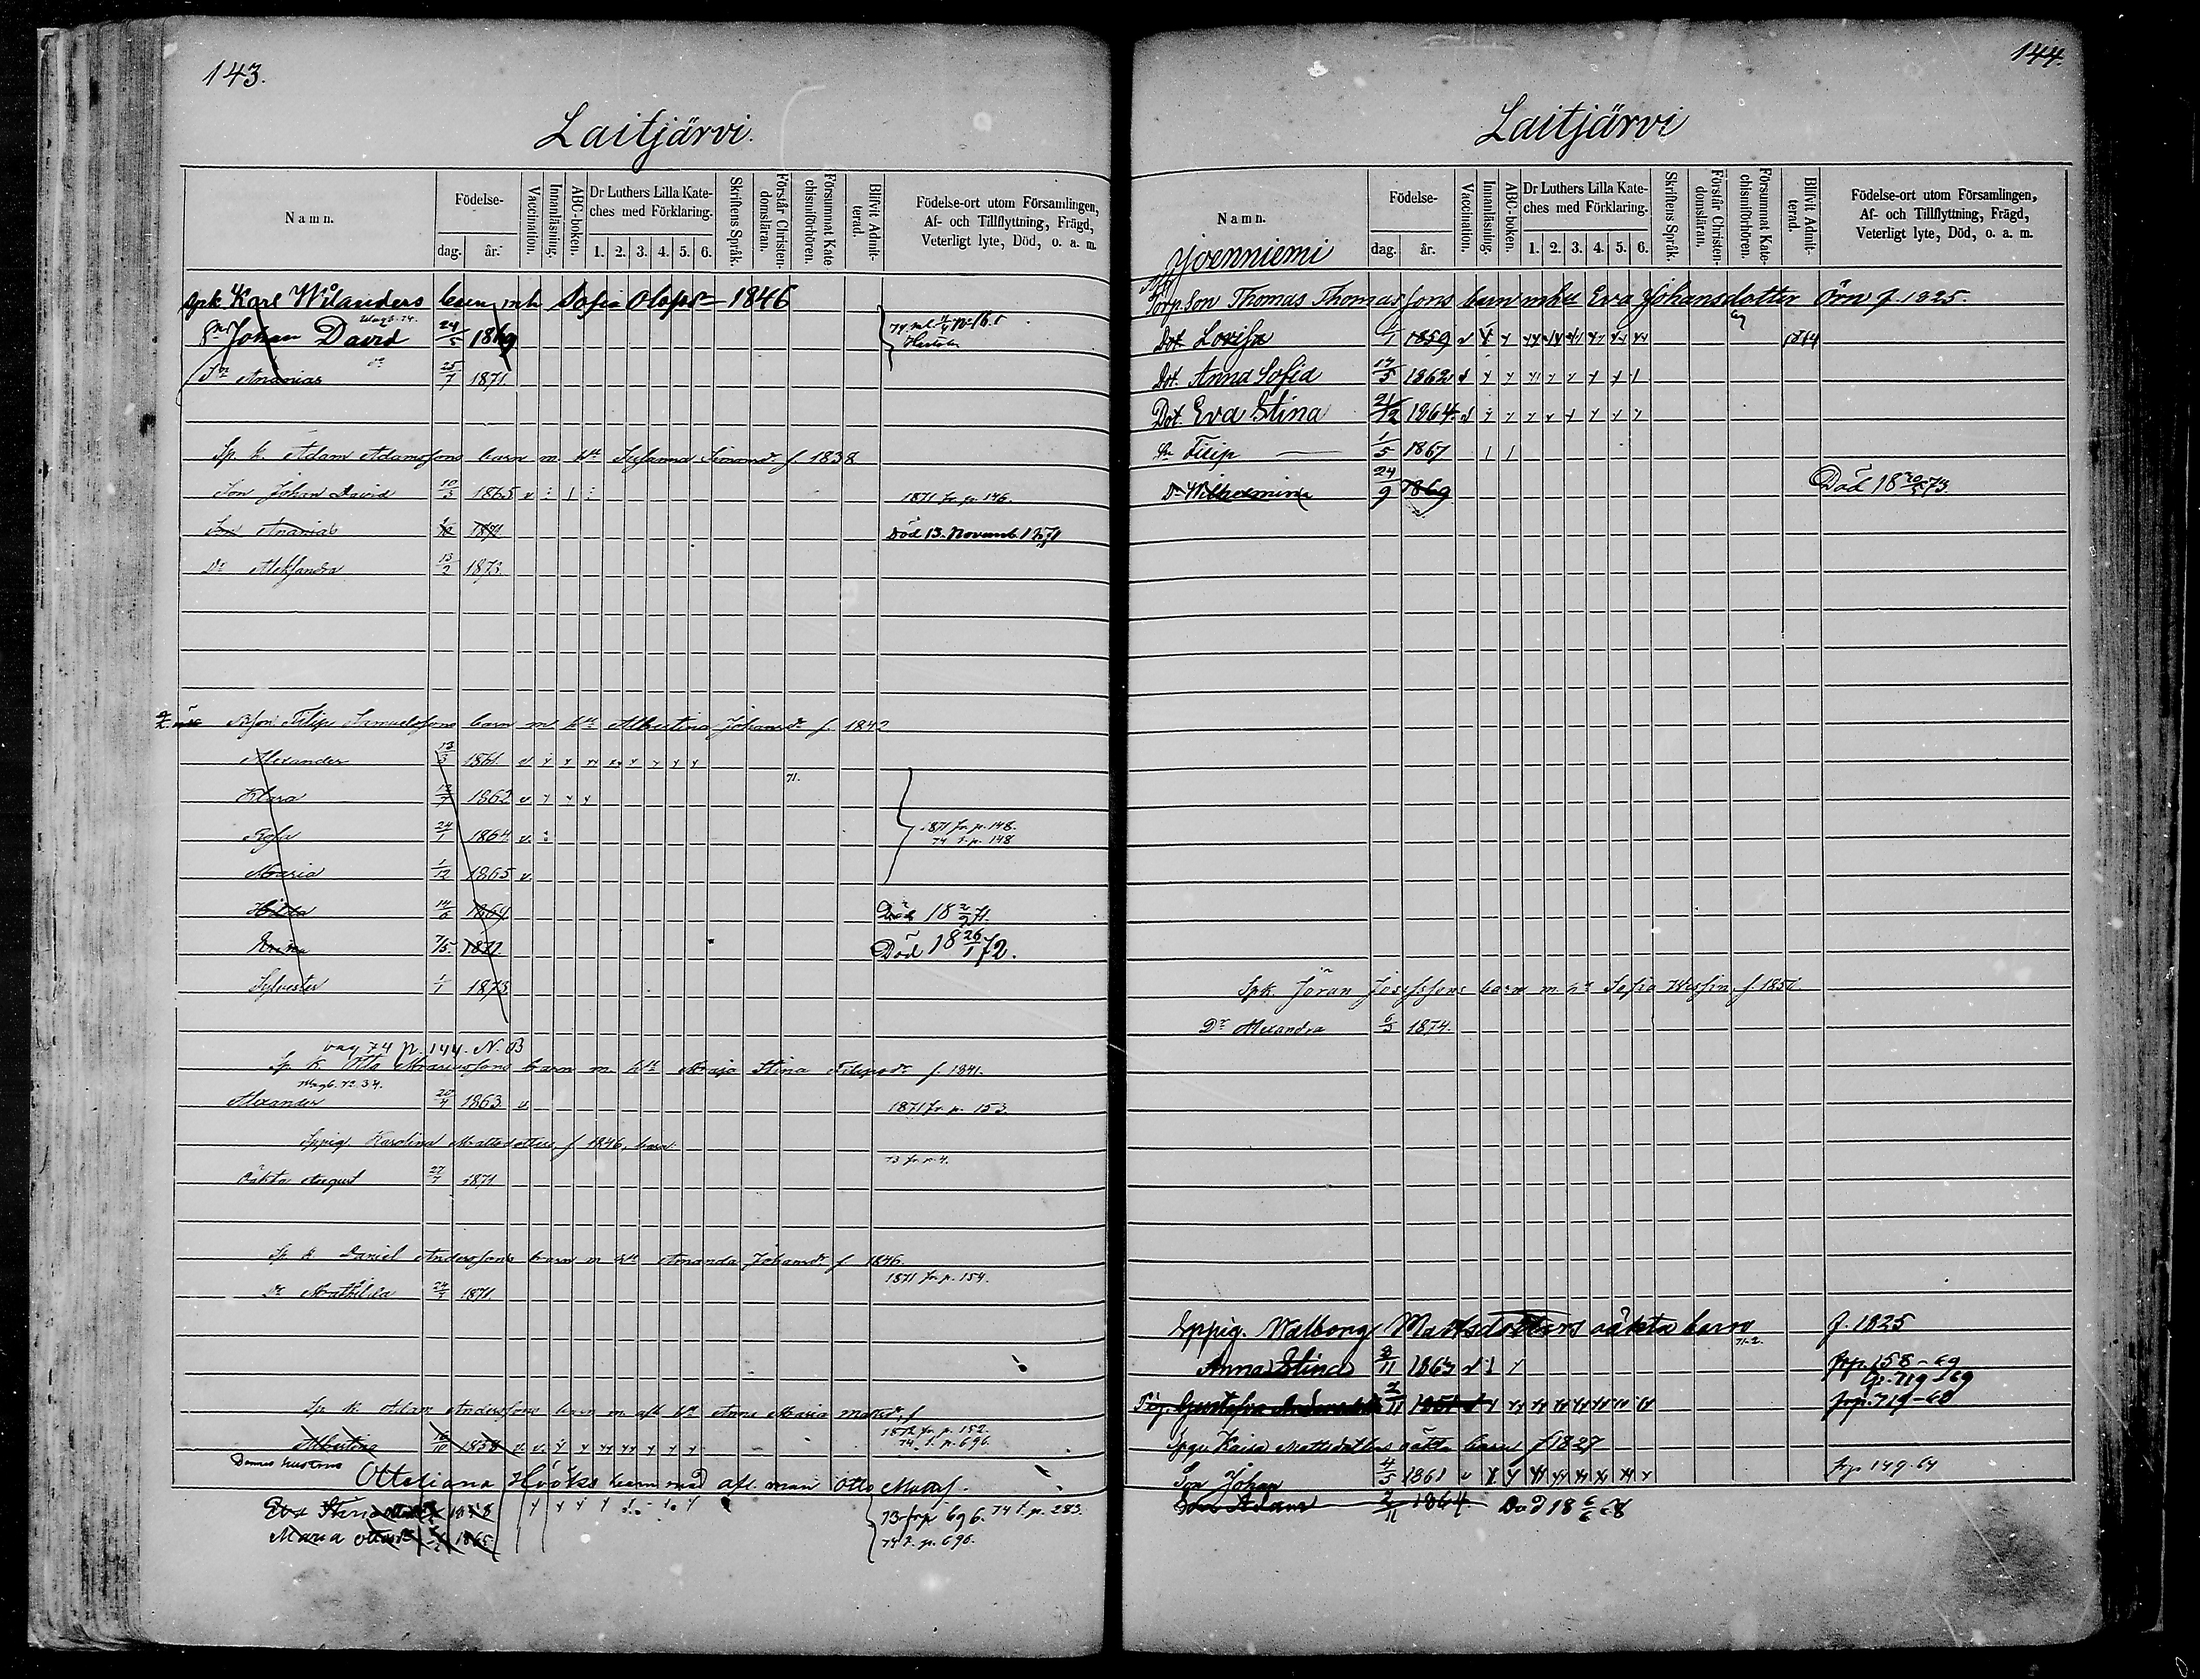 143.
Laitjärvi.
Namn.
Födelse-
dag.
år.
Vaccination.
Innanläsning.
ABC-boken.
Dr Luthers Lilla Kate-
ches med Förklaring.
1. 2. 3. 4. 5. 6.
Skriftens Språk.
Förstår Christen-
domsläran.
Försummat Kate-
chismiförhören.
Blifvit Admit-
terad.
Födelse-ort utom Församlingen,
Af- och Tillflyttning, Frägd,
Veterligt lyte, Död, o. a. m.
Spk Karl Wilanders barn mh Sofia Olofs- 1846
Sn Johan David 24/5 1869
Sn Ananias 25/7 1871.
Sp. k. Adam Adamssons barn m hu Susanna Simonsd. f. 1838
Son Johan David 10/3 1865 v 1871 fr p. 146.
Son Ananias 1871. Död 13. Novemb. 1871
Dr Aleksandra 13/2 1873.
Filip Samuelssons barn m hu Albertina Johansdr f. 1842
Alexander 13/3 1861. v y y yy y y y y
71.
Klara 12/7 1862 v y y y
Rosa 24/1 1864. v. 1871 fr p. 148.
74 t. p. 148
Maria 1/12 1865 v.
Hilda 14/6 1869 Död 18 2/9 71.
7/5. 1871. Död 18 26/1 72.
Sylvester 1/1 1873
74 p. 144. N. B
Sp. k. Otto barn m hu Maja Stina Filipsdr f. 1841.
Alexander 20/4 1863 v. 1871 fr. p. 153.
Sppig. Karolina Mattsdotters f 1846, barn
73 fr. p. 4.
Oäkta August 27/7 1871
Sp. k. Daniel Anderssons barn m hu Amanda Johansdr f 1846.
1871 fr. p. 154.
Dr Mathilda 24/7 1871.
Sp. k. Adam Anderssons barn m afl. hu Anna Maria Mattsdr, f
1872 fr. p. 152.
74. t. p. 696.
Albertina 1858 v. v. y y yy yy y y y y
Dennes hustrus
Ottoliana Hööks barn med afl. man Otto Mattsf.
Eva Stina 1858 73 frp 696. 74 t. p. 283.
Maria 1865 74 t. p. 696.
144.
Laitjärvi
Namn.
Födelse-
dag.
år.
Vaccination.
Innanläsning.
ABC-boken.
Dr Luthers Lilla Kate-
ches med Förklaring.
1. 2. 3. 4. 5. 6.
Skriftens Språk.
Förstår Christen-
domsläran.
Försummat Kate-
chismiförhören.
Blifvit Admit-
terad.
Födelse-ort utom Församlingen,
Af- och Tillflyttning, Frägd,
Veterligt lyte, Död, o. a. m.
Torp. Son Thomas Thomassons barn m hu Eva Johansdotter Örn f. 1825.
Dot. Lovisa 1/1 1859 v y y yy yy yy yy yy yy
Dot. Anna Sofia 17/5 1862 v y y y y y y y 1
Dot. Eva Stina 21/12 1864 v y y y y y y y y
Sn Filip 1/5 1867 1 1
Dr Wilhelmina 24/9 1869 Död 18 20/5 73.
Spk. Jöran Josefssons barn m hu Sofia f. 1850
Dr Alexandra 6/3 1874.
Sppig. Walborg Mattsdotters oäkta barn f. 1825
71-2.
Anna Stina 8/11 1863 v 1 y frp. 158-69
tp. 719-69
Pig. Gustafva 2/11 1851 v y yy yy yy yy yy yy yy frp. 719-69
Kaisa Mattsdotters oäkta barn f 1827
Son Johan 4/5 1861 v y y yy yy yy yy yy y frp 149.64
Son Adam 2/11 1864. Död 18 6/6 68